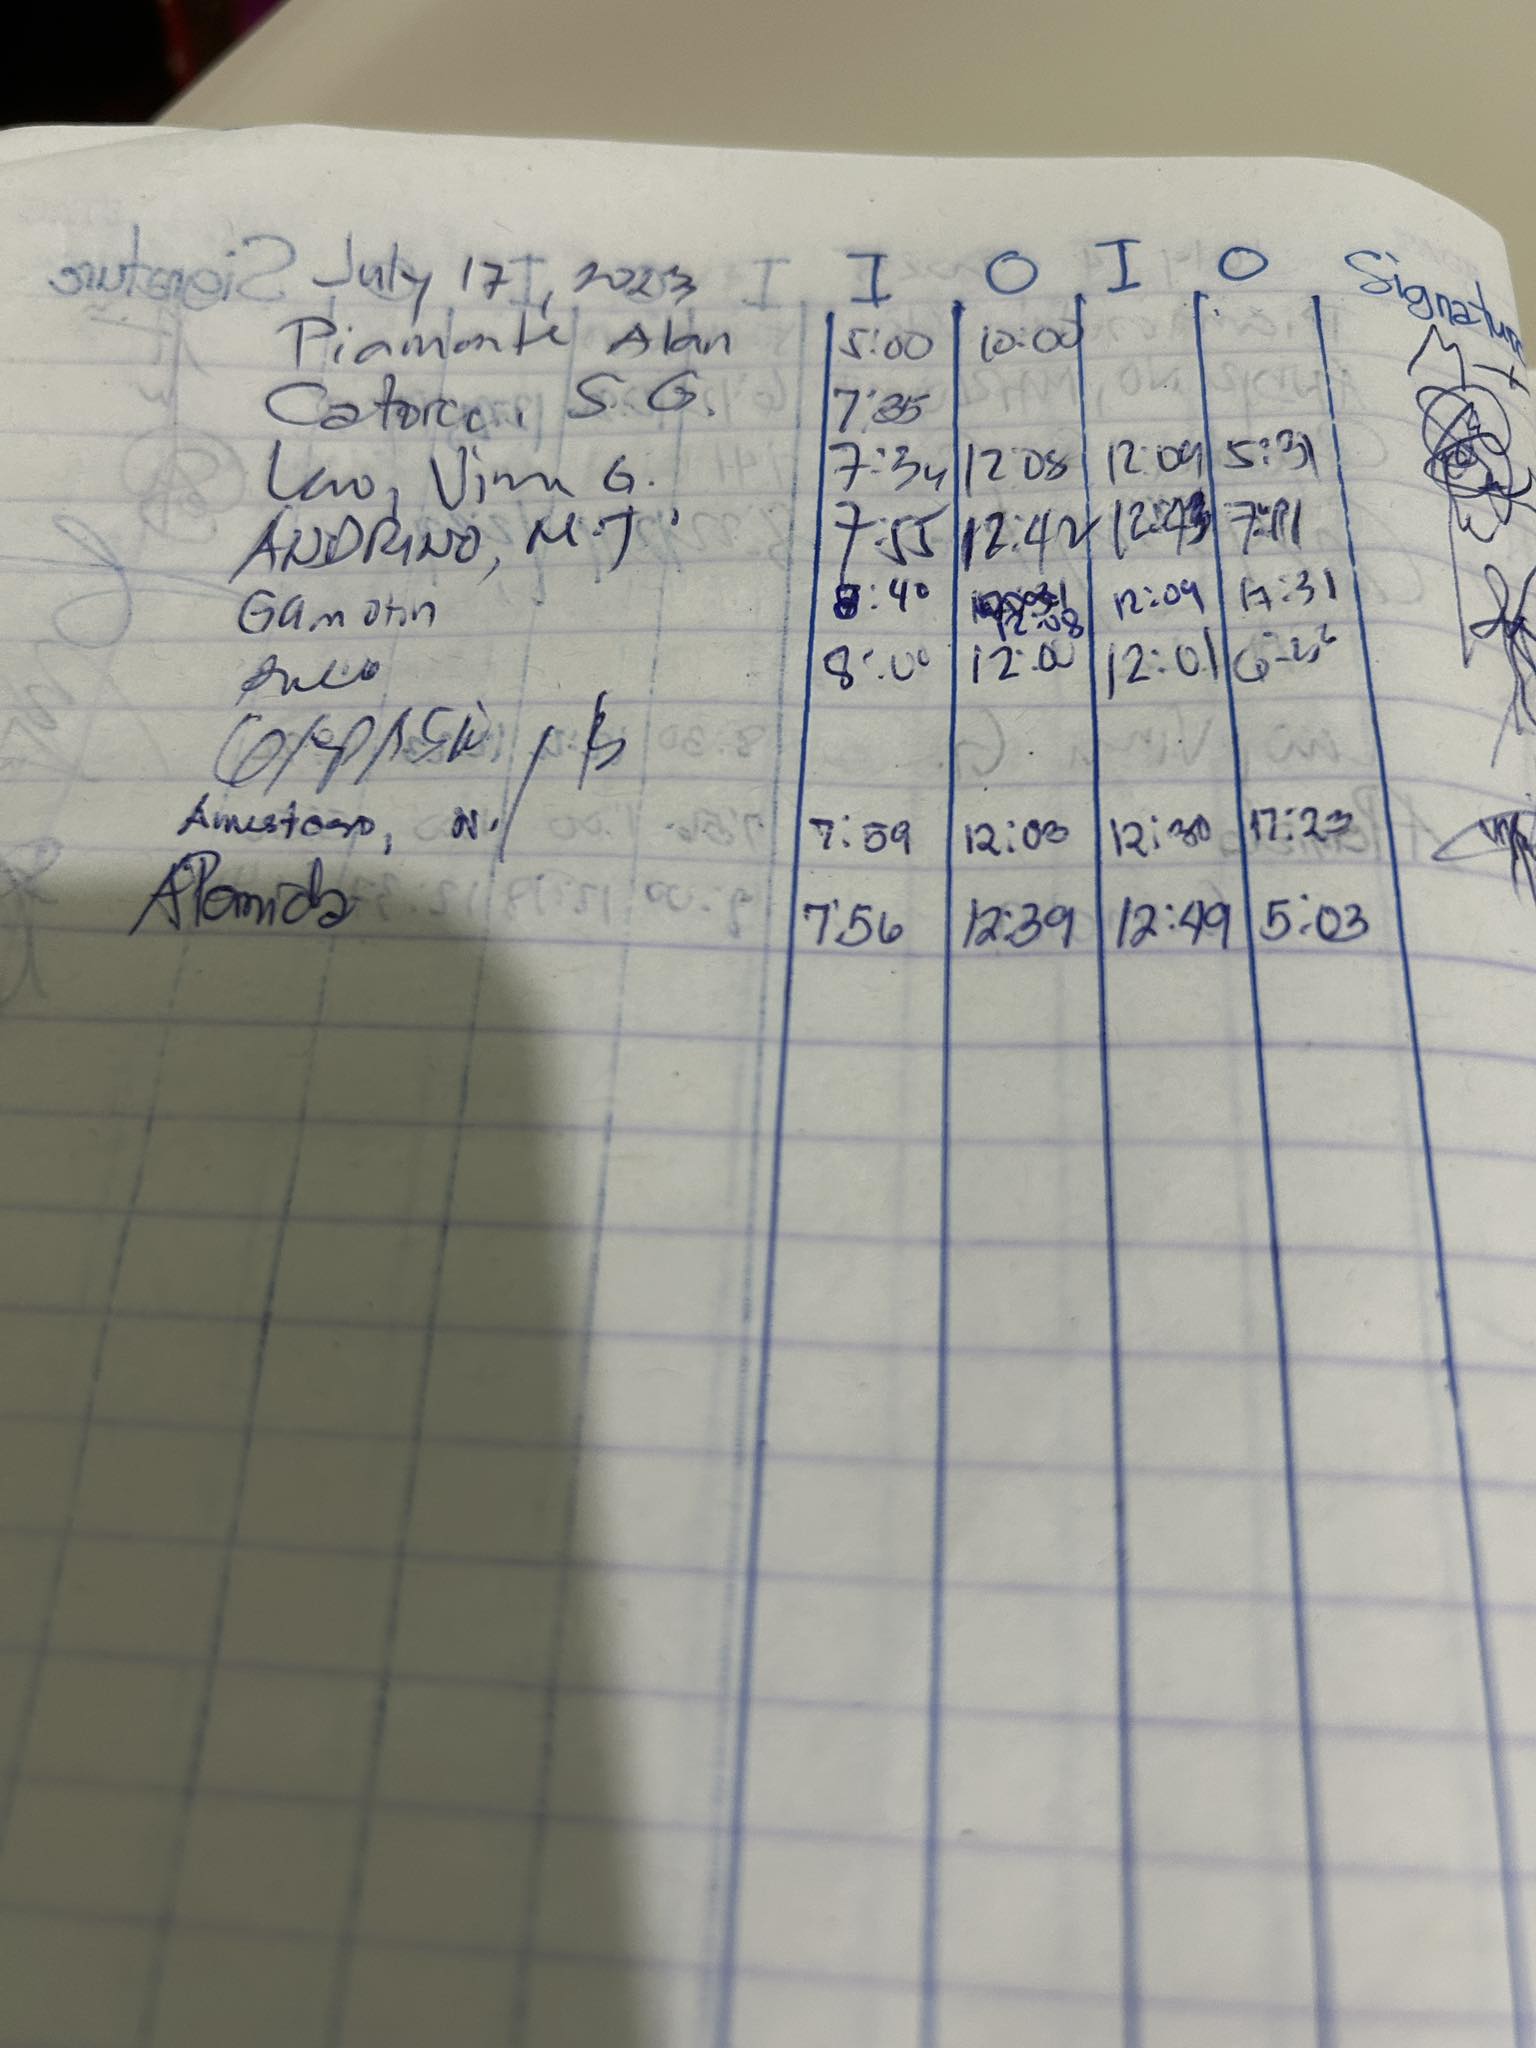 July 17, 2023 I O I O Signature
Piamonte Alan 5:00 10:00
S. G. 7:35
Lao, Vima G. 7:34 12:08 12:09 5:31
ANDRINO, M.J. 7:55 12:42 12:43 7:11
Gamotin 8:40 12:08 12:09 17:31
8:00 12:00 12:01
Amestoso, N. 7:59 12:03 12:30 17:23
Alomida 7:56 12:39 12:49 5:03